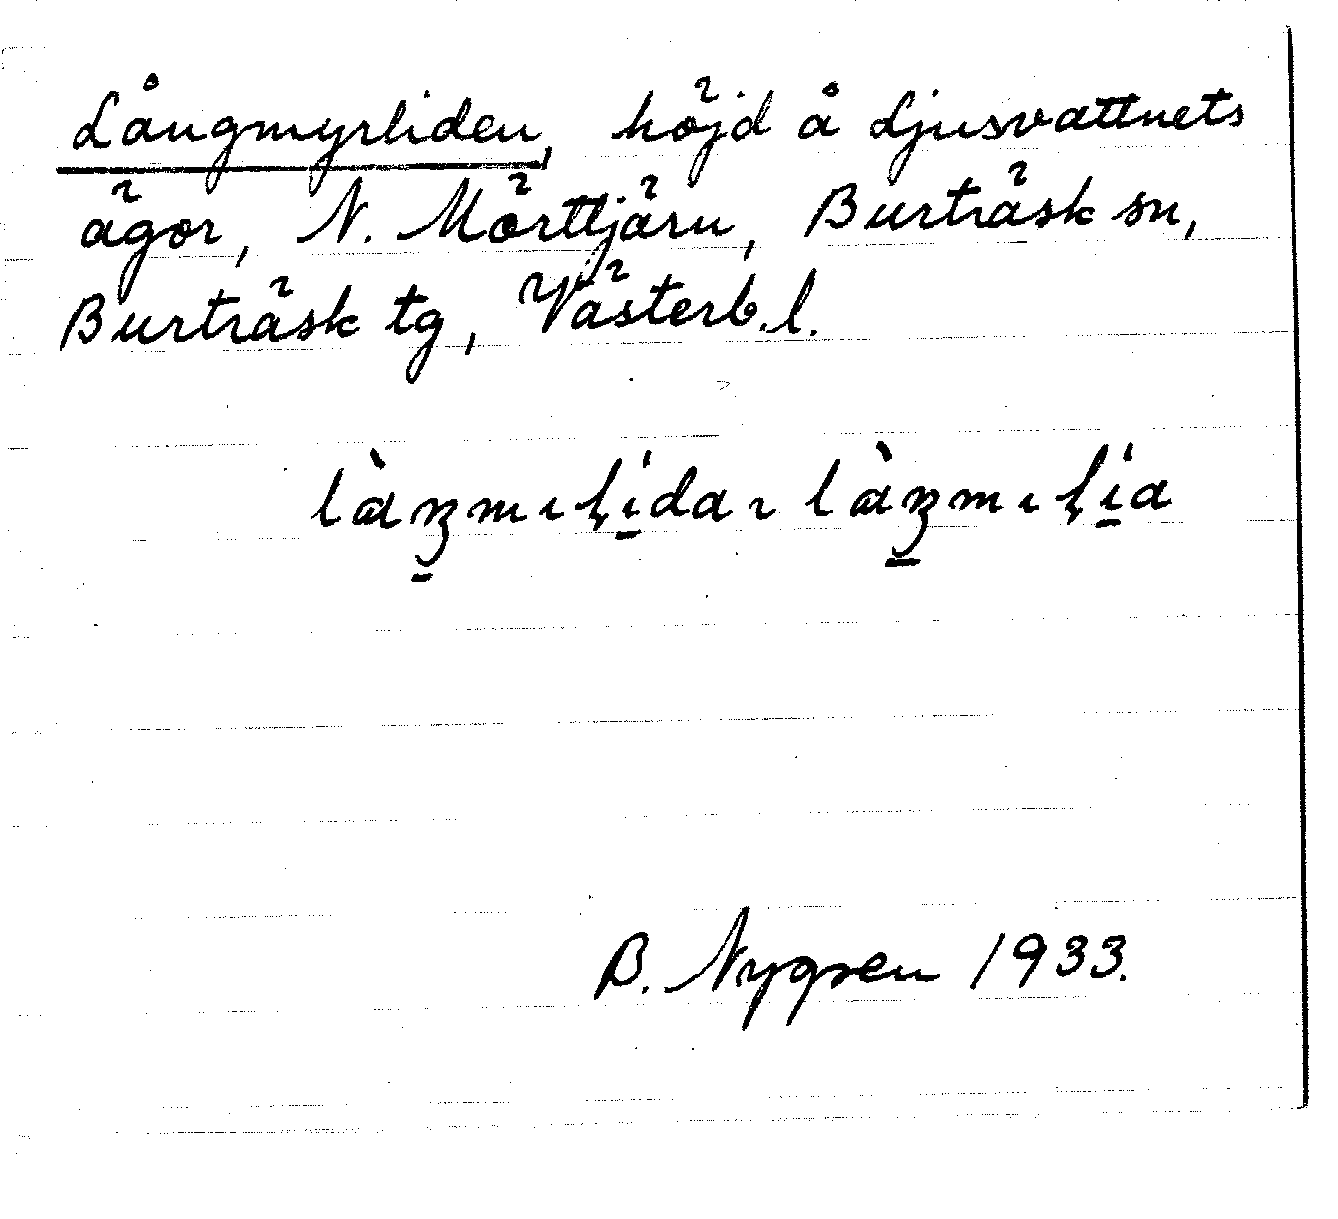 Långmyrliden, höjd å Ljusvattnets
ägor, N. Mörttjärn, Burträsk sn,
Burträsk tg, Västerb. l.
B. Nygren 1933.